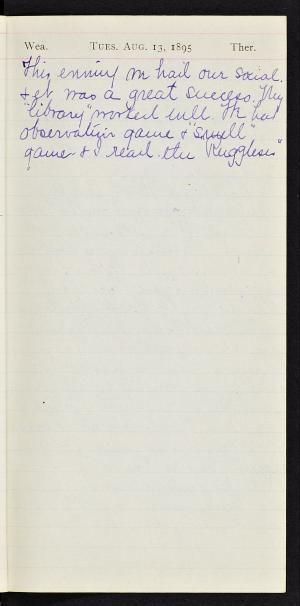 Wea. Tues. Aug. 13, 1895 Ther.
This evening we had our social.
& it was a great success. My
"library" worked well. We had
observation game & "Smell"
game & I read the "Ruggleses"